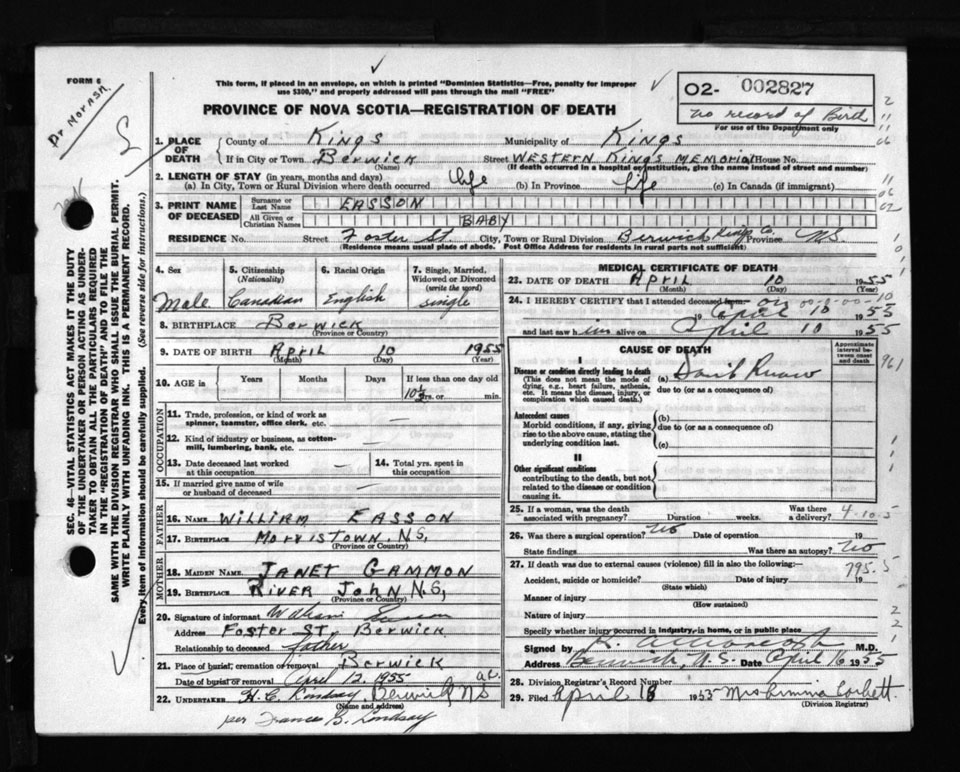 FORM 6
This form, if placed in an envelope, on which is printed "Dominion Statistics—Free, penalty for improper
use $300," and properly addressed will pass through the mail "FREE"
PROVINCE OF NOVA SCOTIA—REGISTRATION OF DEATH
02- 002827
no record of Birth
For use of the Department only
SEC. 46—VITAL STATISTICS ACT MAKES IT THE DUTY
OF THE UNDERTAKER OR PERSON ACTING AS UNDER-
TAKER TO OBTAIN ALL THE PARTICULARS REQUIRED
IN THE "REGISTRATION OF DEATH" AND TO FILE THE
SAME WITH THE DIVISION REGISTRAR WHO SHALL ISSUE THE BURIAL PERMIT.
WRITE PLAINLY WITH UNFADING INK. THIS IS A PERMANENT RECORD.
Every item of information should be carefully supplied. (See reverse side for instructions.)
1. PLACE OF DEATH County of Kings Municipality of Kings
If in City or Town Berwick Street WESTERN KINGS MEMORIAL House No.
(Name) (If death occurred in a hospital or institution, give the name instead of street and number)
2. LENGTH OF STAY (in years, months and days)
(a) In City, Town or Rural Division where death occurred life (b) In Province life (c) In Canada (if immigrant)
3. PRINT NAME OF DECEASED Surname or Last Name EASSON
All Given or Christian Names BABY
RESIDENCE No. Street Foster St. City, Town or Rural Division Berwick Kings Co. Province N.S.
Residence means usual place of abode. Post Office Address for residents in rural parts not sufficient)
4. Sex Male
5. Citizenship (Nationality) Canadian
6. Racial Origin English
7. Single, Married, Widowed or Divorced (write the word) single
8. BIRTHPLACE Berwick
(Province or Country)
9. DATE OF BIRTH April 10 1955
(Month) (Day) (Year)
10. AGE in Years Months Days If less than one day old
10½ hrs. or min.
OCCUPATION
11. Trade, profession, or kind of work as
spinner, teamster, office clerk, etc. —
12. Kind of industry or business, as cotton-
mill, lumbering, bank, etc. —
13. Date deceased last worked at this occupation — 14. Total yrs. spent in this occupation
15. If married give name of wife
or husband of deceased —
FATHER
16. NAME WILLIAM EASSON
17. BIRTHPLACE MORRISTOWN N.S.
(Province or Country)
MOTHER
18. MAIDEN NAME JANET GAMMON
19. BIRTHPLACE RIVER JOHN N.S.
(Province or Country)
20. Signature of informant William Easson
Address Foster ST. Berwick
Relationship to deceased father
21. Place of burial, cremation or removal Berwick
Date of burial or removal April 12, 1955
22. UNDERTAKER H. C. Lindsay, Berwick NS
(Name and address)
per Frances B. Lindsay
MEDICAL CERTIFICATE OF DEATH
23. DATE OF DEATH April 10 1955
(Month) (Day) (Year)
24. I HEREBY CERTIFY that I attended deceased from on
April 10 1955
and last saw him alive on April 10 1955
CAUSE OF DEATH
Approximate interval between onset and death
I
Disease or condition directly leading to death
(This does not mean the mode of
dying, e.g., heart failure, asthenia,
etc. It means the disease, injury, or
complication which caused death.)
(a)
due to (or as a consequence of)
Antecedent causes
Morbid conditions, if any, giving
rise to the above cause, stating the
underlying condition last.
(b)
due to (or as a consequence of)
(c)
II
Other significant conditions
contributing to the death, but not
related to the disease or condition
causing it.
25. If a woman, was the death
associated with pregnancy? Duration weeks. Was there a delivery?
26. Was there a surgical operation? No Date of operation 19
State findings Was there an autopsy? No
27. If death was due to external causes (violence) fill in also the following:—
795.5
Accident, suicide or homicide? Date of injury 19
(State which)
Manner of injury
(How sustained)
Nature of injury
Specify whether injury occurred in industry, in home, or in public place
Signed by M.D.
Address Berwick, N.S. Date April 16 1955
28. Division Registrar's Record Number
29. Filed April 18 1955 Mrs Corbett.
(Division Registrar)